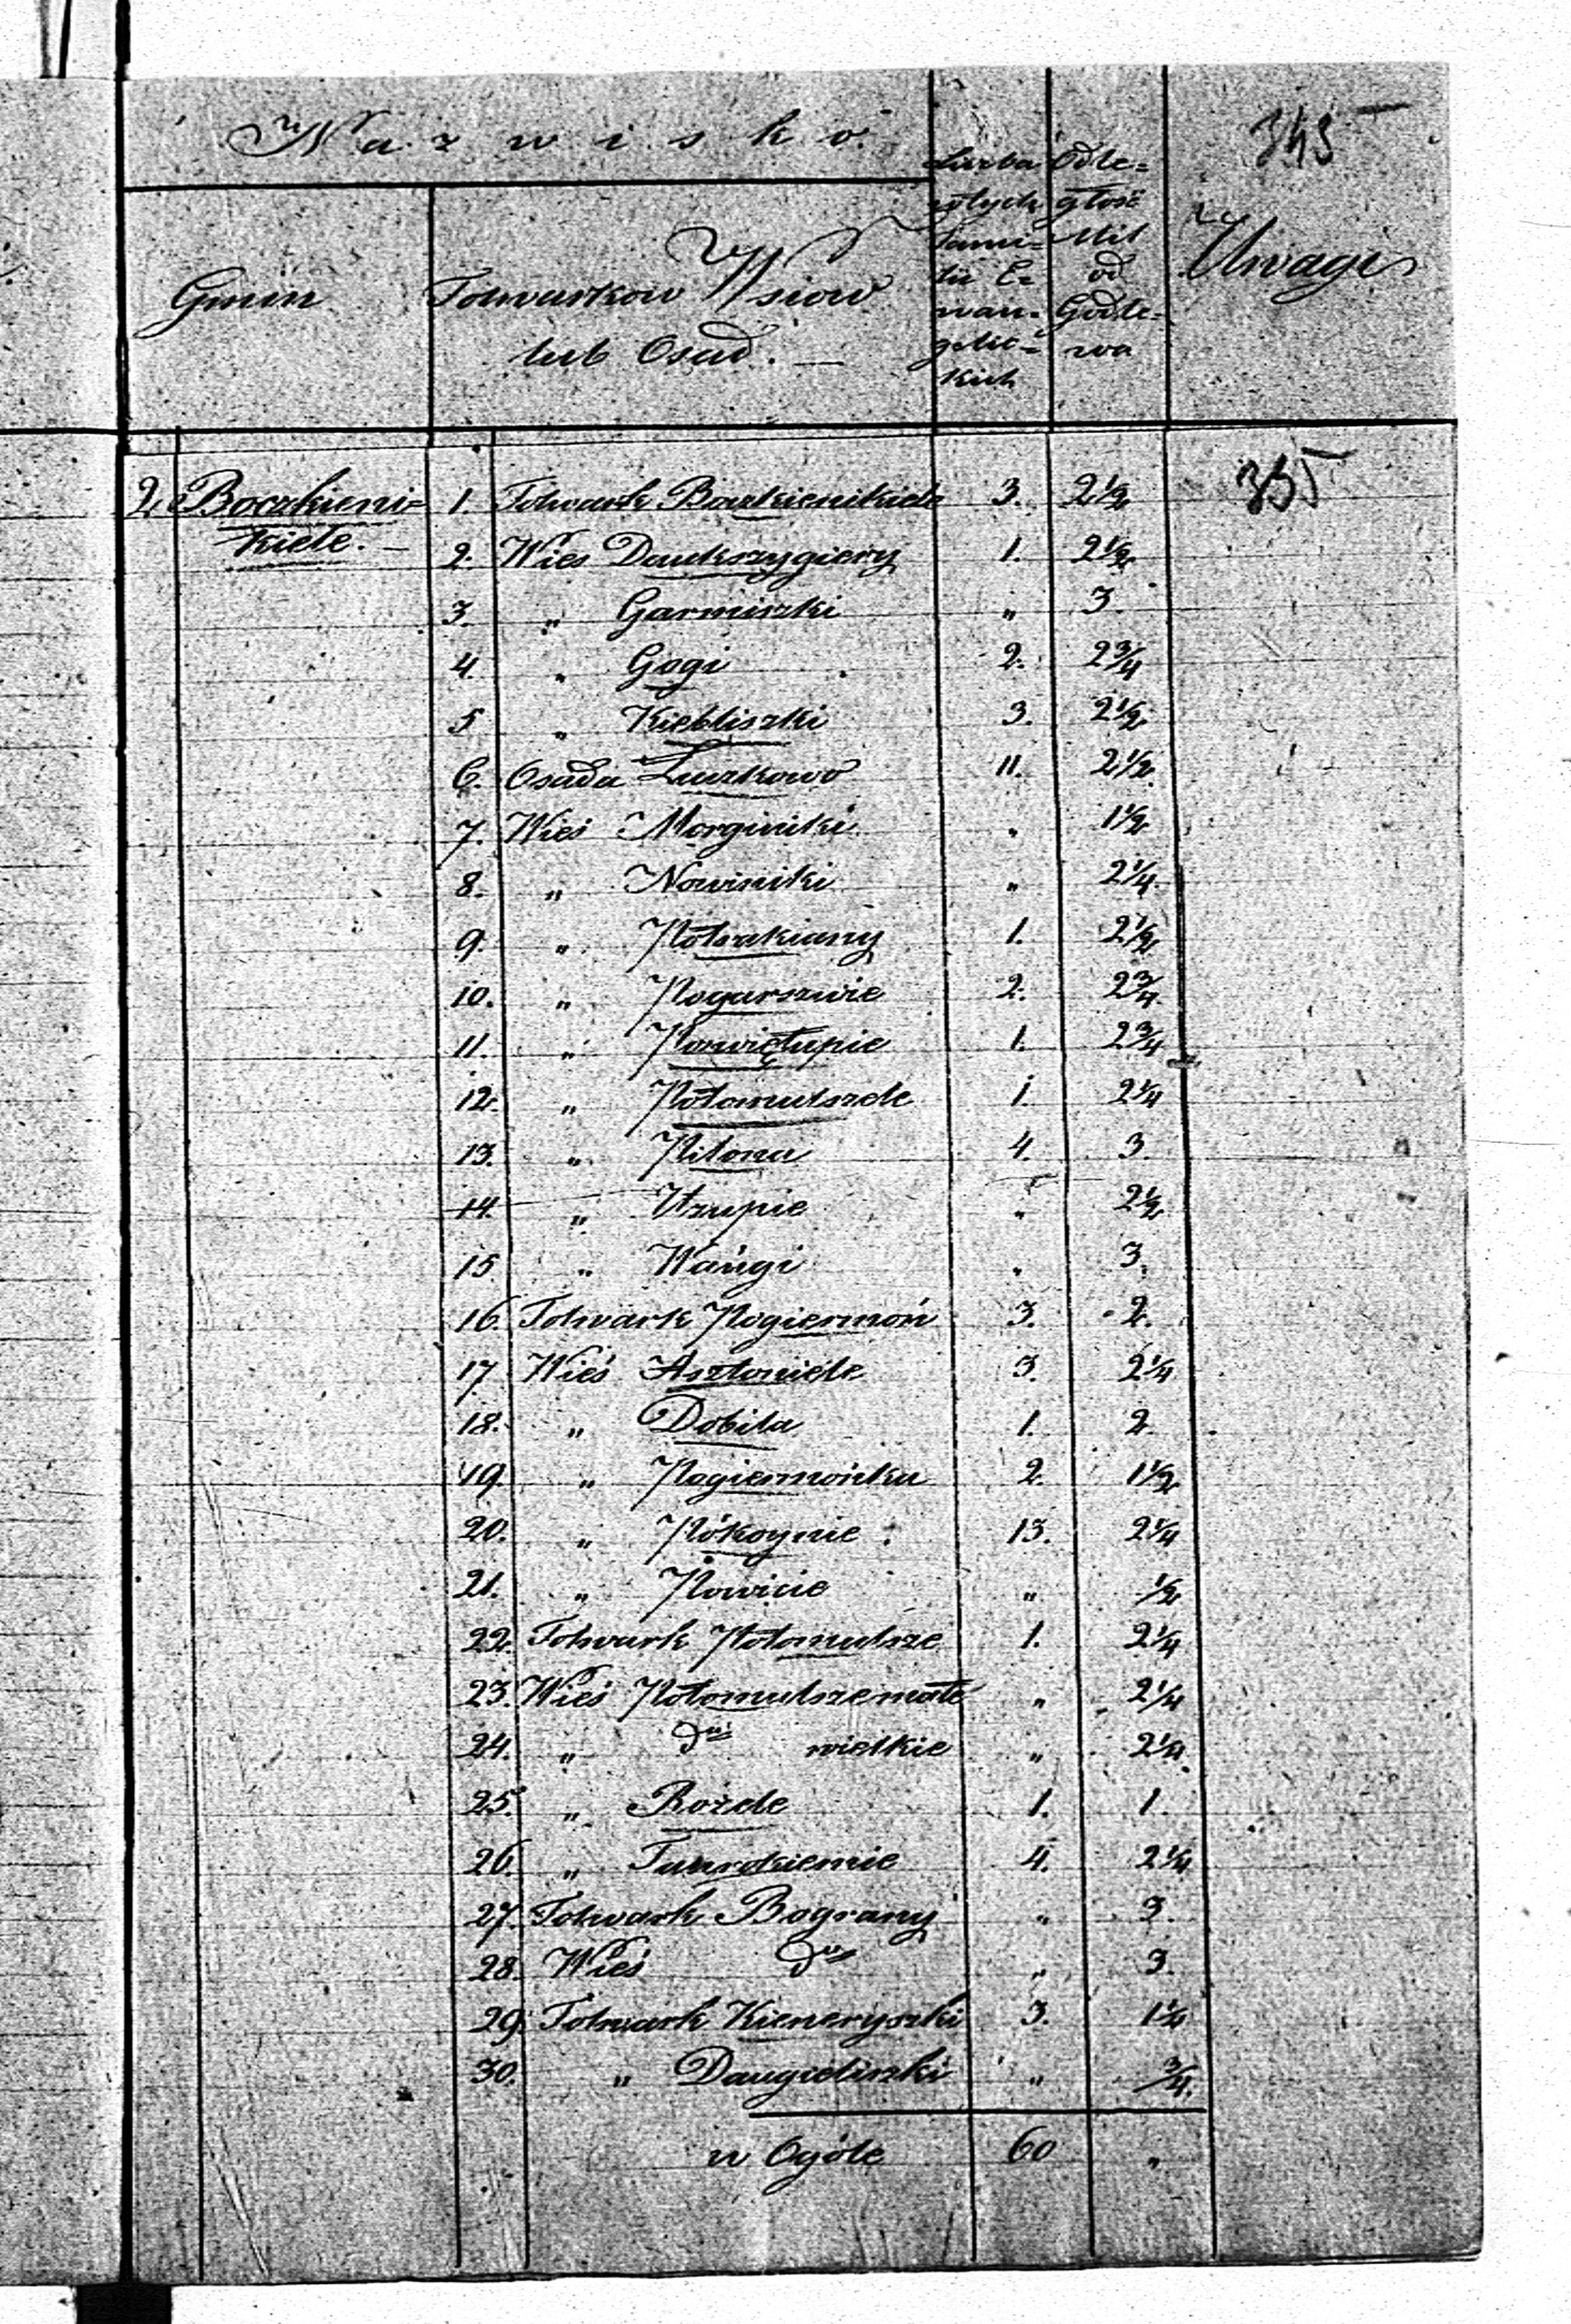 Nazwisko
345
Gmin
Folwarkow Wsiow
lub Osad. —
Liczba
całych
Fami=
lii E=
wan=
gelic=
kich
Odle=
głość
Mil
od
Godle=
wa
Uwagi
355
2. Boczkieni=
kiele. —
1. Folwark Boczkienikiele 3. 2 1/2
2. Wies Daukszygiery 1. 2 1/2
3. " Garniszki " 3.
4. " Gogi 2. 2 3/4
5 " Kiebliszki 3. 2 1/2
6. Osada Luszkowo 11. 2 1/2
7. Wieś Morginiki " 1 1/2
8. " Nowiniki " 2 1/4
9. " Połrakiany 1. 2 1/2
10. " Pogarszwie 2. 2 3/4
11. " Poswiętupie 1. 2 3/4
12. " Połomułszele 1. 2 1/4
13. " Pilona 4. 3
14. " Uzupie " 2 1/2
15 " Wangi " 3.
16. Folwark Pogiermoń 3. 2.
17 Wieś Asztoniele 3. 2 1/4
18. " Dobila 1. 2
19. " Pogiermońka 2. 1 1/2
20. " Pokoynie 13. 2 1/4
21. " Powicie " 1/2
22. Folwark Połomulsze 1. 2 1/4
23. Wieś Połomulsze małe " 2 1/4
24. " dto wielkie " 2 1/4
25. " Rożele 1. 1.
26. " Taurokiemie 4. 2 1/4
27. Folwark Bograny " 3.
28. Wieś dto " 3.
29. Folwark Kieneryszki 3. 1 1/2
30. " Daugieliszki " 3/4.
w Ogóle 60 "